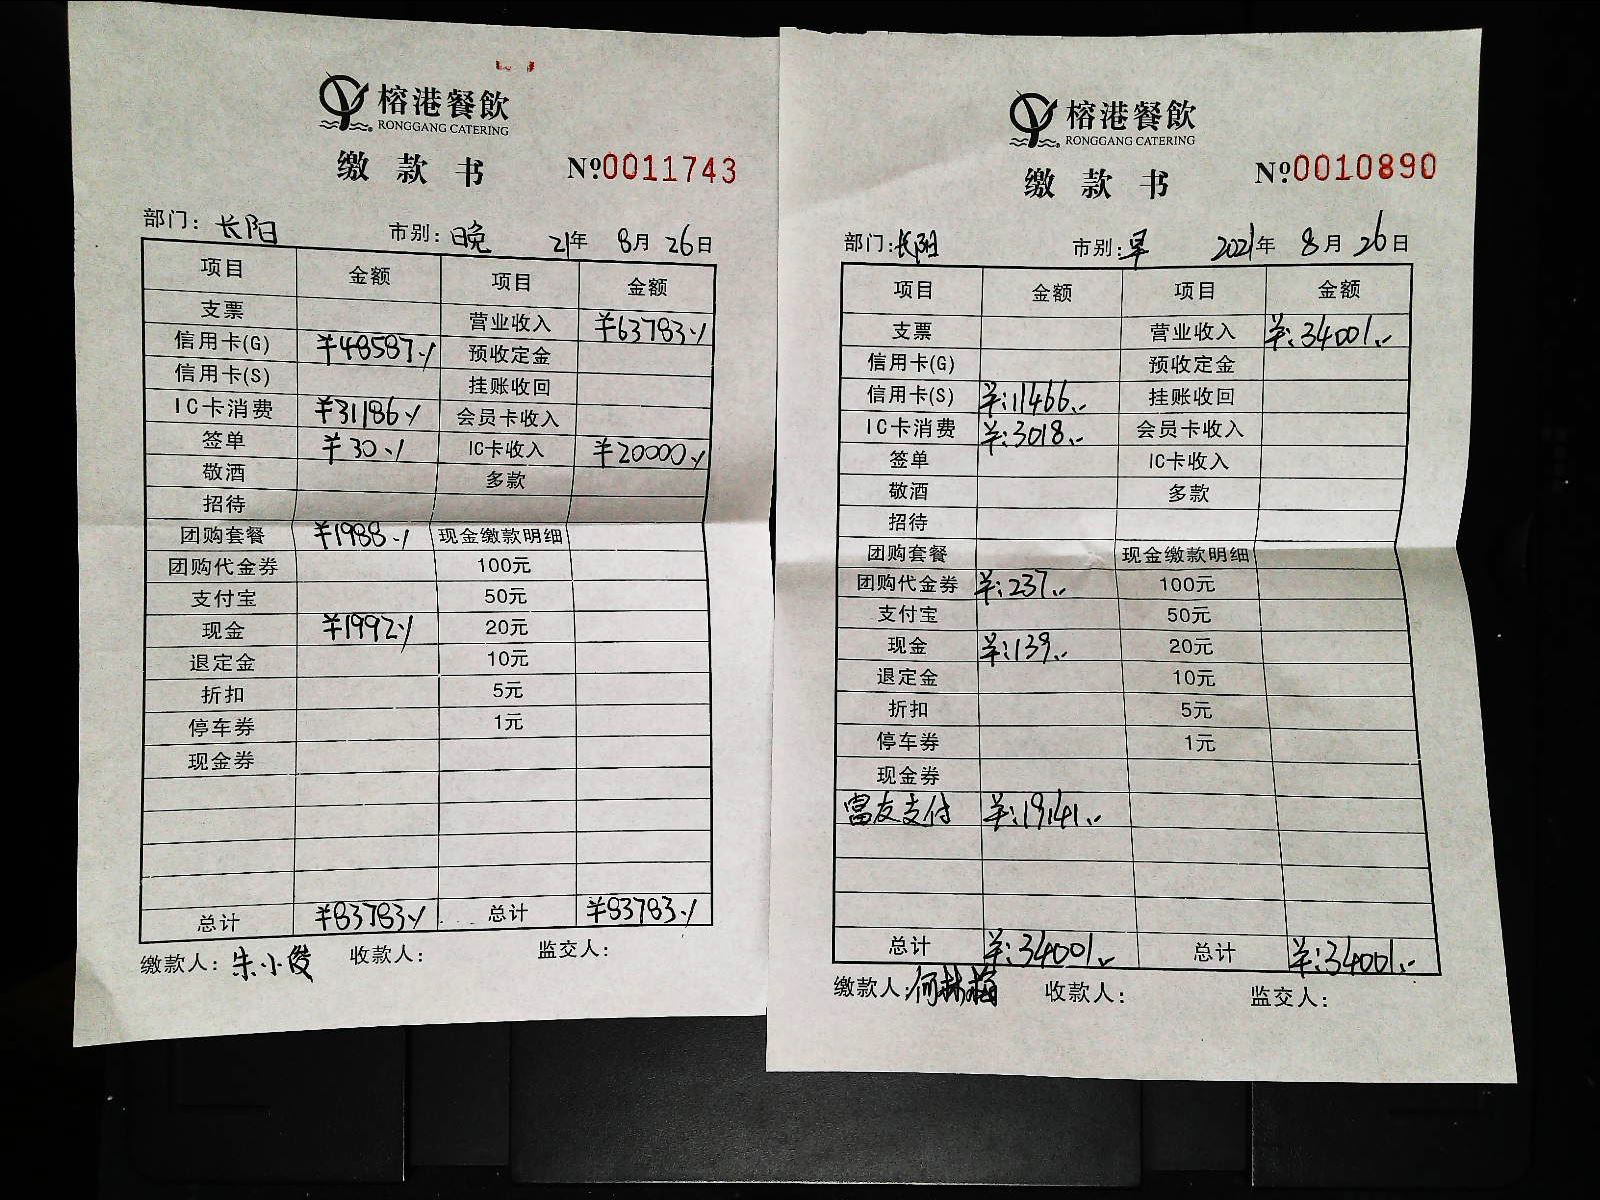 榕港餐飲
RONGGANG CATERING
缴款书 №0011743
部门: 长阳 市别: 晚 21年 8月 26日
项目 金额 项目 金额
支票 营业收入 ¥63783.
信用卡(G) ¥48587. 预收定金
信用卡(S) 挂账收回
IC卡消费 ¥31186. 会员卡收入
签单 ¥30. IC卡收入 ¥20000.
敬酒 多款
招待
团购套餐 ¥1988. 现金缴款明细
团购代金券 100元
支付宝 50元
现金 ¥1992. 20元
退定金 10元
折扣 5元
停车券 1元
现金券
总计 ¥83783. 总计 ¥83783.
缴款人: 朱小俊 收款人: 监交人:
榕港餐飲
RONGGANG CATERING
缴款书 №0010890
部门: 长阳 市别: 早 2021年 8月 26日
项目 金额 项目 金额
支票 营业收入 ¥:34001.
信用卡(G) 预收定金
信用卡(S) ¥:11466. 挂账收回
IC卡消费 ¥:3018. 会员卡收入
签单 IC卡收入
敬酒 多款
招待
团购套餐 现金缴款明细
团购代金券 ¥:237. 100元
支付宝 50元
现金 ¥:139. 20元
退定金 10元
折扣 5元
停车券 1元
现金券
富友支付 ¥:19141.
总计 ¥:34001. 总计 ¥:34001.
缴款人: 何林梅 收款人: 监交人: